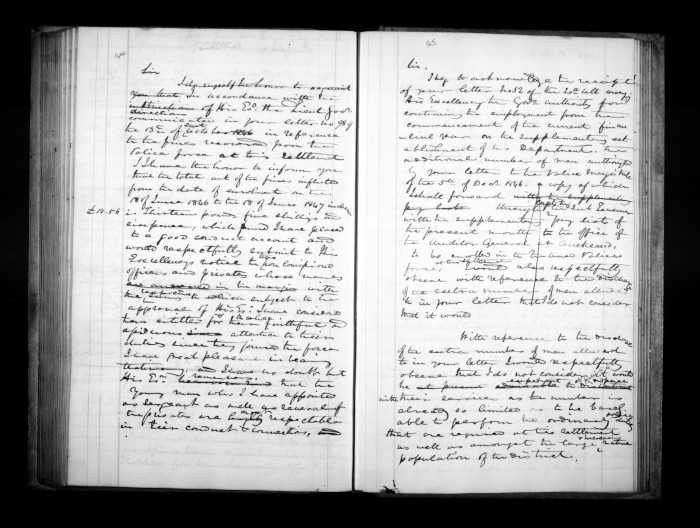 Sir
I do myself the honor to acquaint
you that in accordance with the
instructions of His Ex. the Lieut Govr
directions
communicated in your letter no 98 of
the 13th of October 1846 in reference
to the fines recovered from the
Police force at this settlement
I have the honor to inform you
that the total amt of the fines inflicted
from the date of enrolment on the
18 of June 1846 to the 18 of June 1847 inclusive
£13.5.6
is Thirteen pounds five shillings &
sixpence, which I have placed
to a good conduct account and
would respectfully submit to His
Excellency's notice the non Comissioned
officers and privates whose names
are in the margin with
the sums to which subject to the
respective
approval of His Ex. I have considered
them entitled for their faithful &
attention to their
duties since they joined the force
I have great pleasure in
and I have no doubt but
His Ex. that the
Young man who I have appointed
as sergeant as well as several of
the privates are highly respectable
in their conduct & connections,
45
Sir,
I beg to acknowledge the receipt
of your letter No 52 of the 20th
His Excellency the Govrs authority for
continuing the employment from the
commencement of the current finan
-cial year on the supplementary est
ablishment of this Department. the
additional number of men authorized
by your letter to the Police Magistrate
of the 5th of Decr 1846. a copy of which
I shall forward
with the supplementary pay list of
the present month to the office of
the Auditor General at Auckland,
to be enrolled in the armed Police
force. I would also respectfully
observe with reference to the
of the extra number of men allowed
to in your letter that I do not consider
that it would
With reference to the
of the extra number of men allowed
to in your letter I would respectfully
observe that I do not consider it would
be at present expedient to dispense
with their services as the number is
already so limited as to be barely
able to perform the ordinary duty
that are required at this settlement
as well as amongst the large native
population of the district.